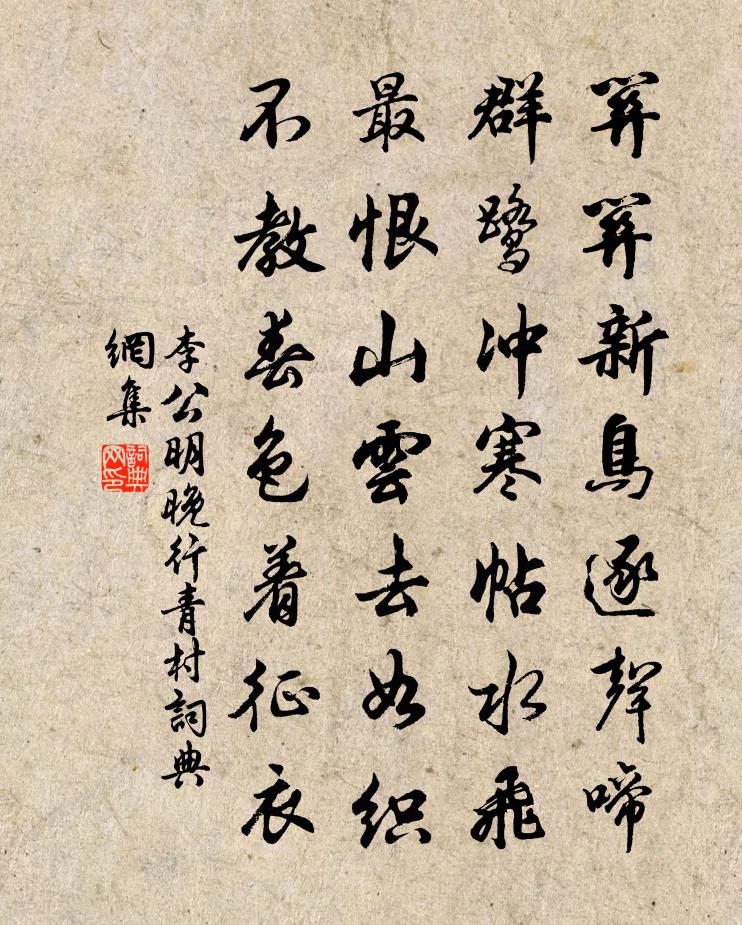 关关新鳥逐聲啼
群鷺冲寒帖水飛
最恨山雲去如织
不教春色着征衣
李公明晚行青村詞典
網集
詞典网印